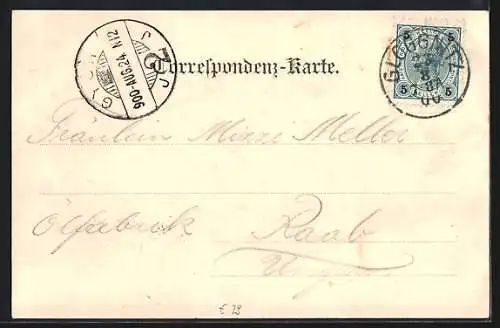 GYŐR
900-AUG.24. N12
Correspondenz-Karte.
GLOGGNITZ
5 5
Fräulein Mizzi Meller
Ölfabrik Raab
Ungarn
£ 29